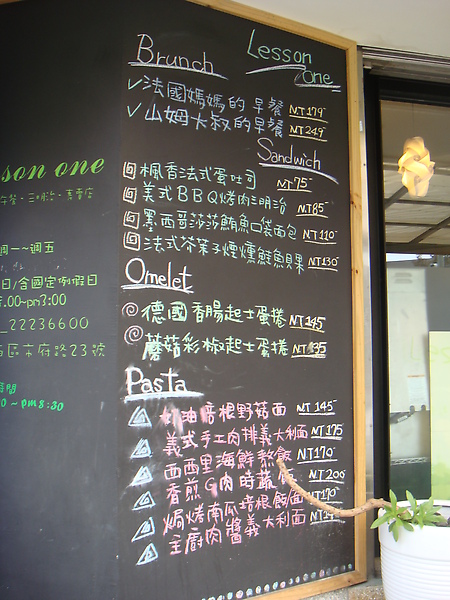 Brunch
Lesson
one
法國媽媽的早餐 NT179
山姆大叔的早餐 NT249
Sandwich
楓香法式蛋吐司 NT75
美式BBQ烤肉三明治 NT85
墨西哥莎莎鮪魚口袋面包 NT110
法式茶葉子煙燻鮭魚貝果 NT130
Omelet
德國香腸起士蛋捲 NT145
蘑菇彩椒起士蛋捲
Pasta
奶油培根野菇面 NT145
義式手工肉排義大利面 NT175
西西里海鮮熬飯 NT170
香煎 肉時蔬 NT200
焗烤南瓜培根飽面 NT170
主廚肉醬義大利面 NT
son one
週一~週五
日/含國定例假日
.00~pm3:00
_22236600
區市府路23號
時間
0~pm8:30